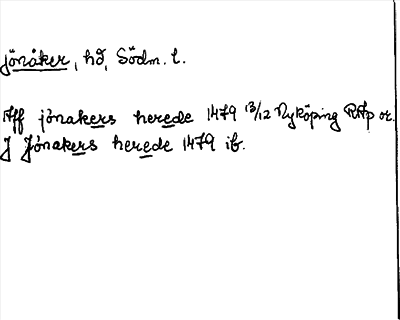 jönåker, hd, Södm. l.
Aff jónakers herede 1479 13/12 Nyköping RAp or.
J Jónakers herede 1479 ib.